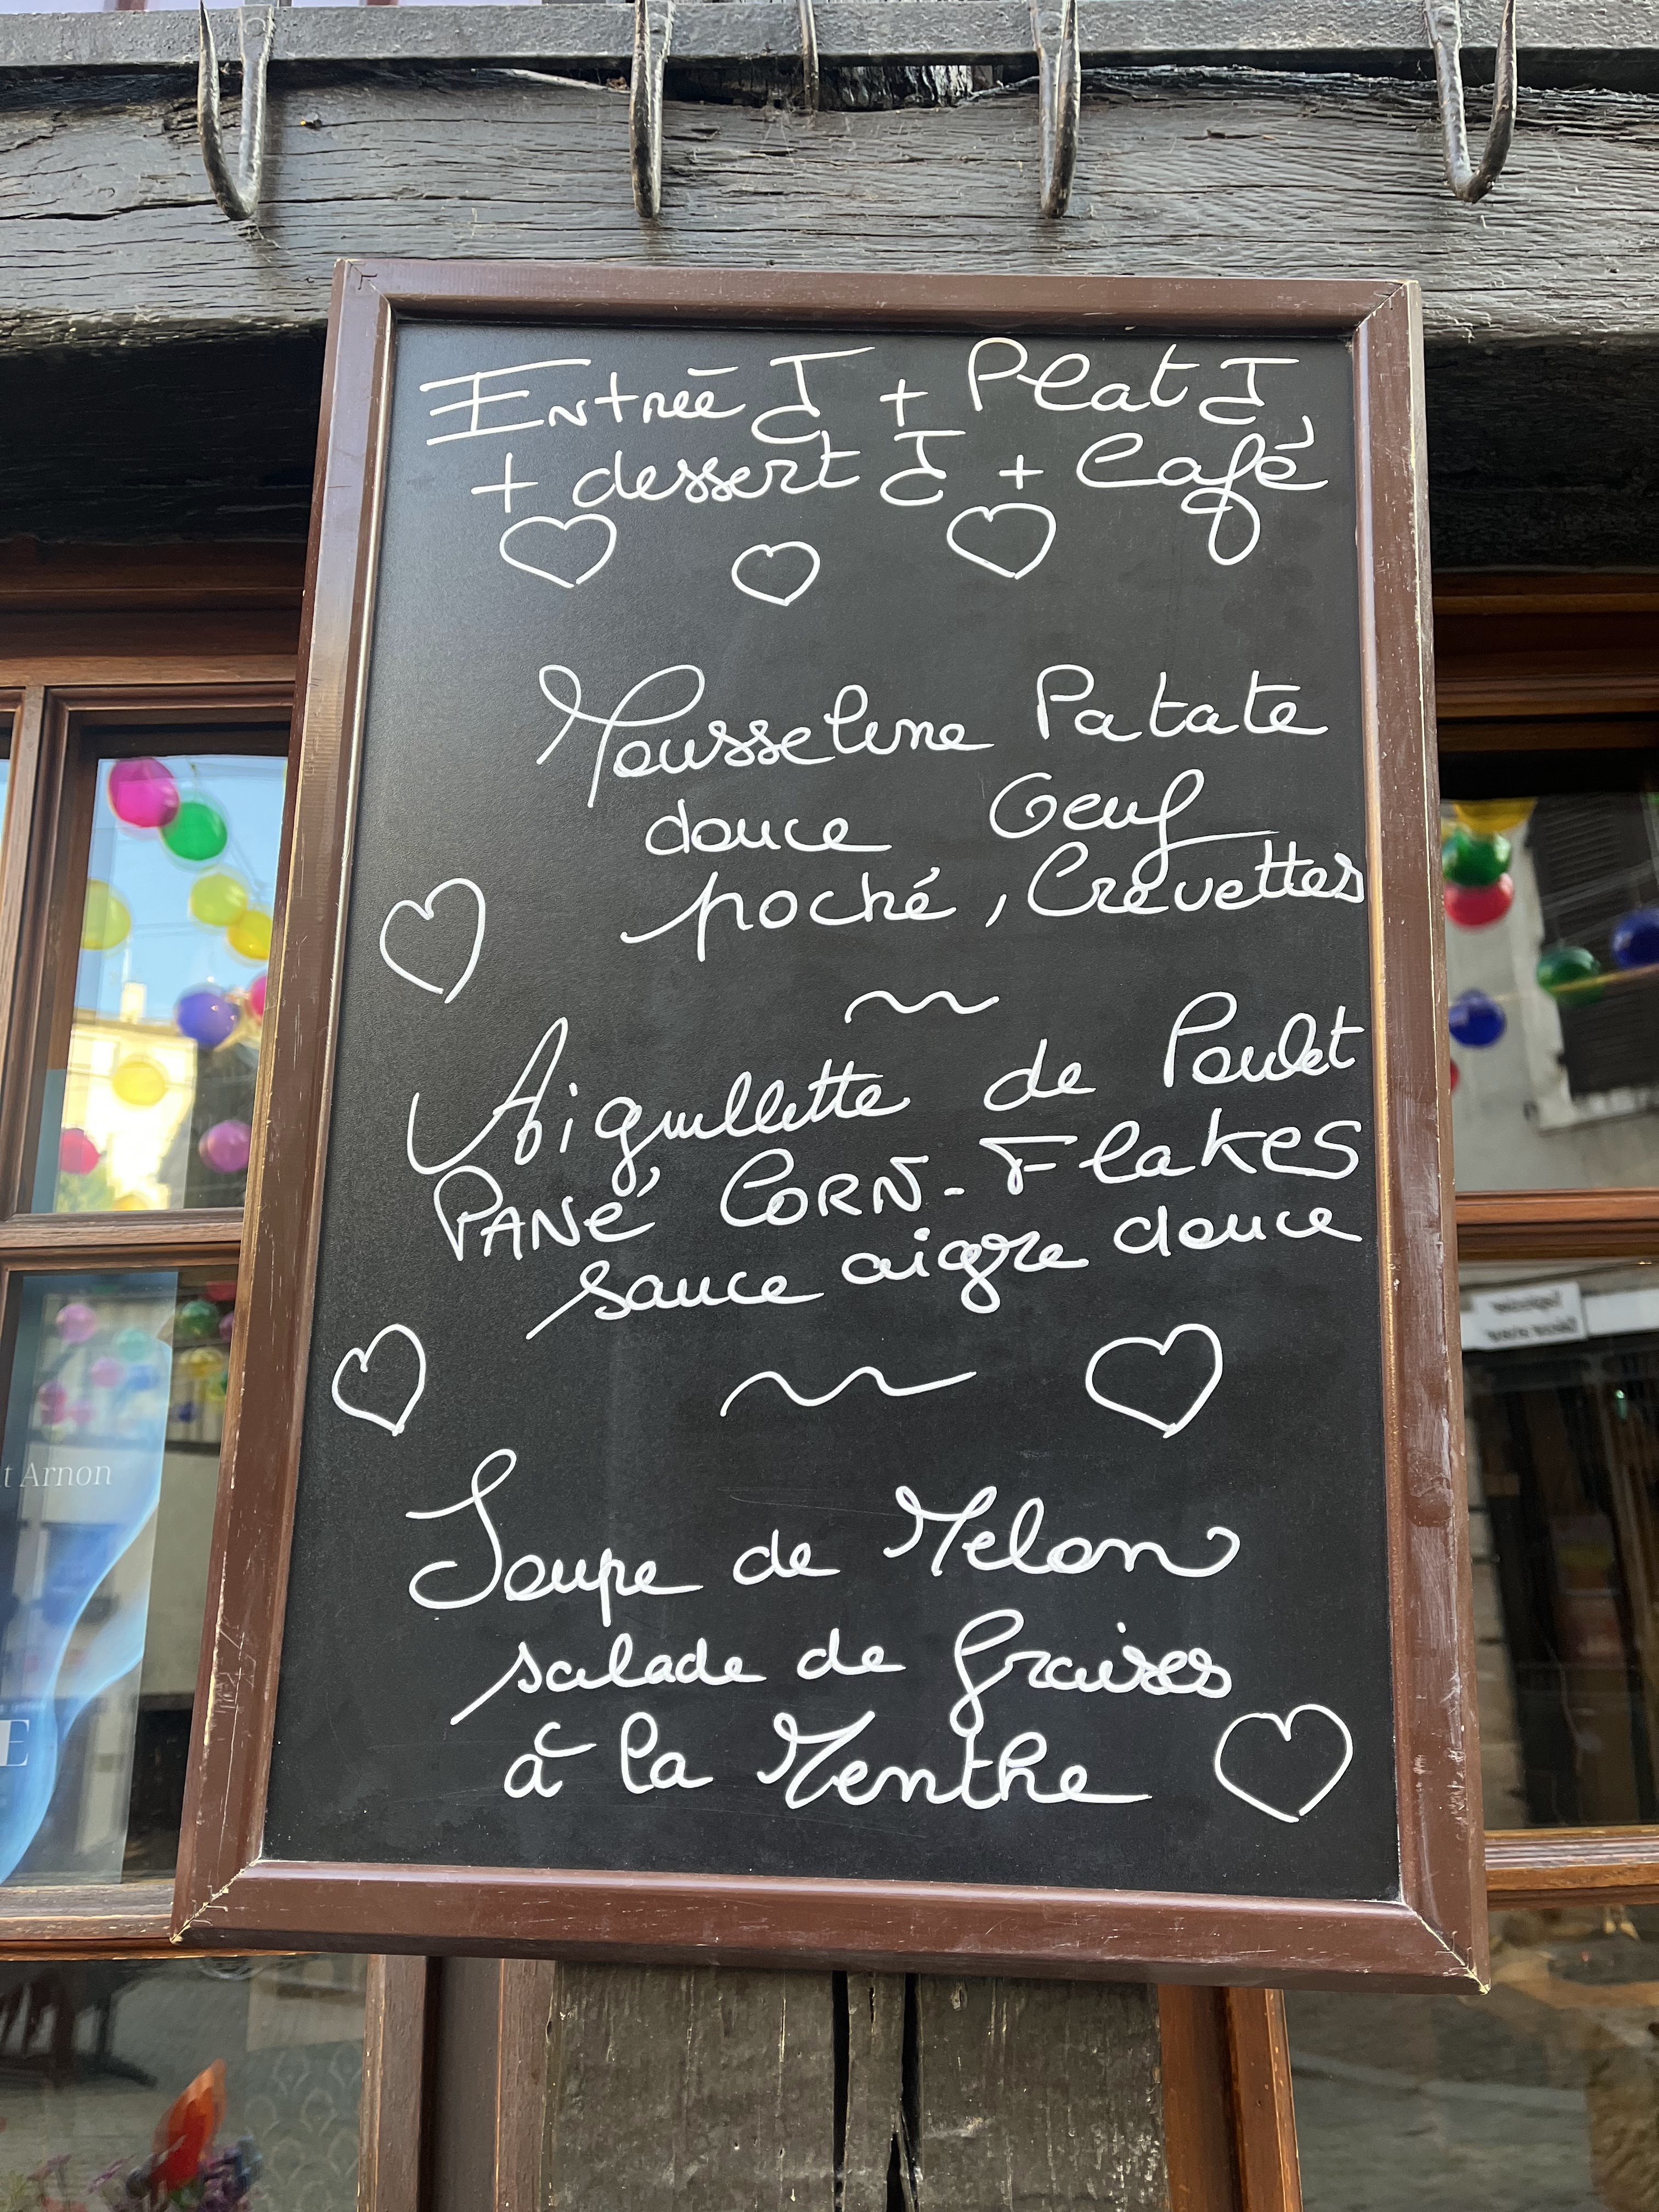 Entrée J + Plat J
+ dessert J + Café
Mousseline Patate
douce Oeuf
poché, Crevettes
Aiguillette de Poulet
PANé, CORN-Flakes
sauce aigre douce
Soupe de Melon
salade de fraises
à la Menthe
t Arnon
E